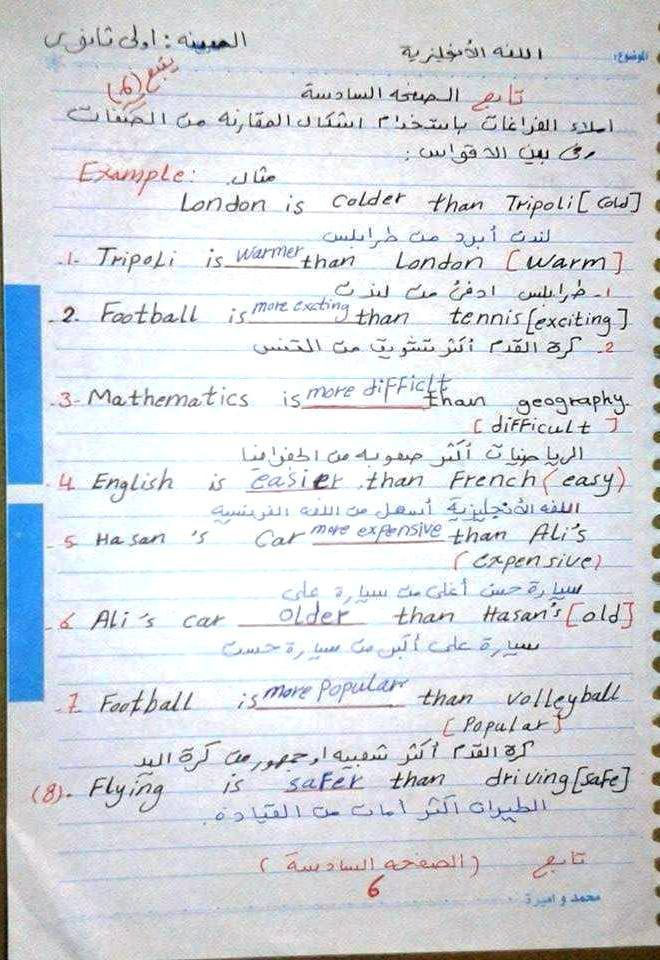 الموضوع: اللغه الأنجليزية العينه: اولى ثانوى
تابع الصفحه السادسة يتبع (6)
املاء الفراغات باستخدام اشكال المقارنه من الصفات
بين الاقواس:
Example: مثال
London is colder than Tripoli [cold]
لندن أبرد من طرابلس
1- Tripoli is warmer than London [warm]
1- طرابلس ادفئ من لندن
2. Football is more excting than tennis [exciting]
2- كرة القدم أكثر تشويق من التنس
3- Mathematics is more difficlt than geography.
[difficult]
الرياضيات أكثر صعوبه من الجغرافيا
4 English is easier than French (easy)
اللغه الأنجليزية أسهل من اللغه الفرنسية
5 Hasan 's car more expensive than Ali's
(expensive)
سيارة حسن أغلى من سيارة على
6 Ali's car older than Hasan's [old]
سيارة على أكبر من سيارة حسن
7 Football is more Popular than volleyball
[Popular]
كرة القدم أكثر شعبيه او جمهور من كرة اليد
(8). Flying is safer than driving [safe]
الطيران أكثر أمان من القيادة.
تابع (الصفحه السادسة)
6
محمد و اميرة